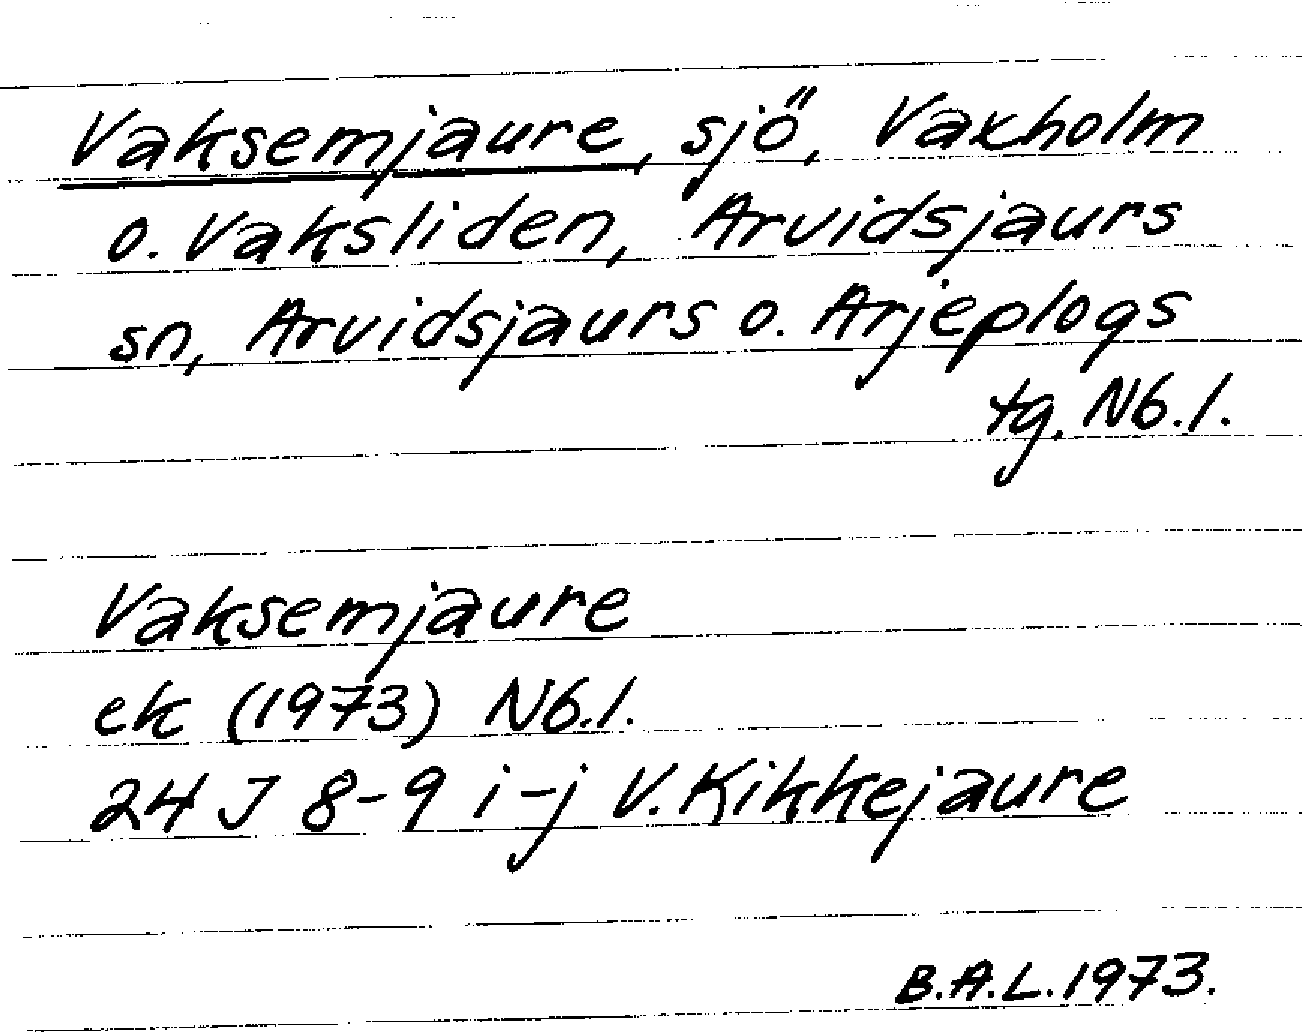 Vaksemjaure, sjö, Vaxholm
o. Vaksliden, Arvidsjaurs
sn, Arvidsjaurs o. Arjeplogs
tg. Nb.l.
Vaksemjaure
ek (1973) Nb.l.
24 J 8-9 i-j V. Kikkejaure
B.A.L. 1973.